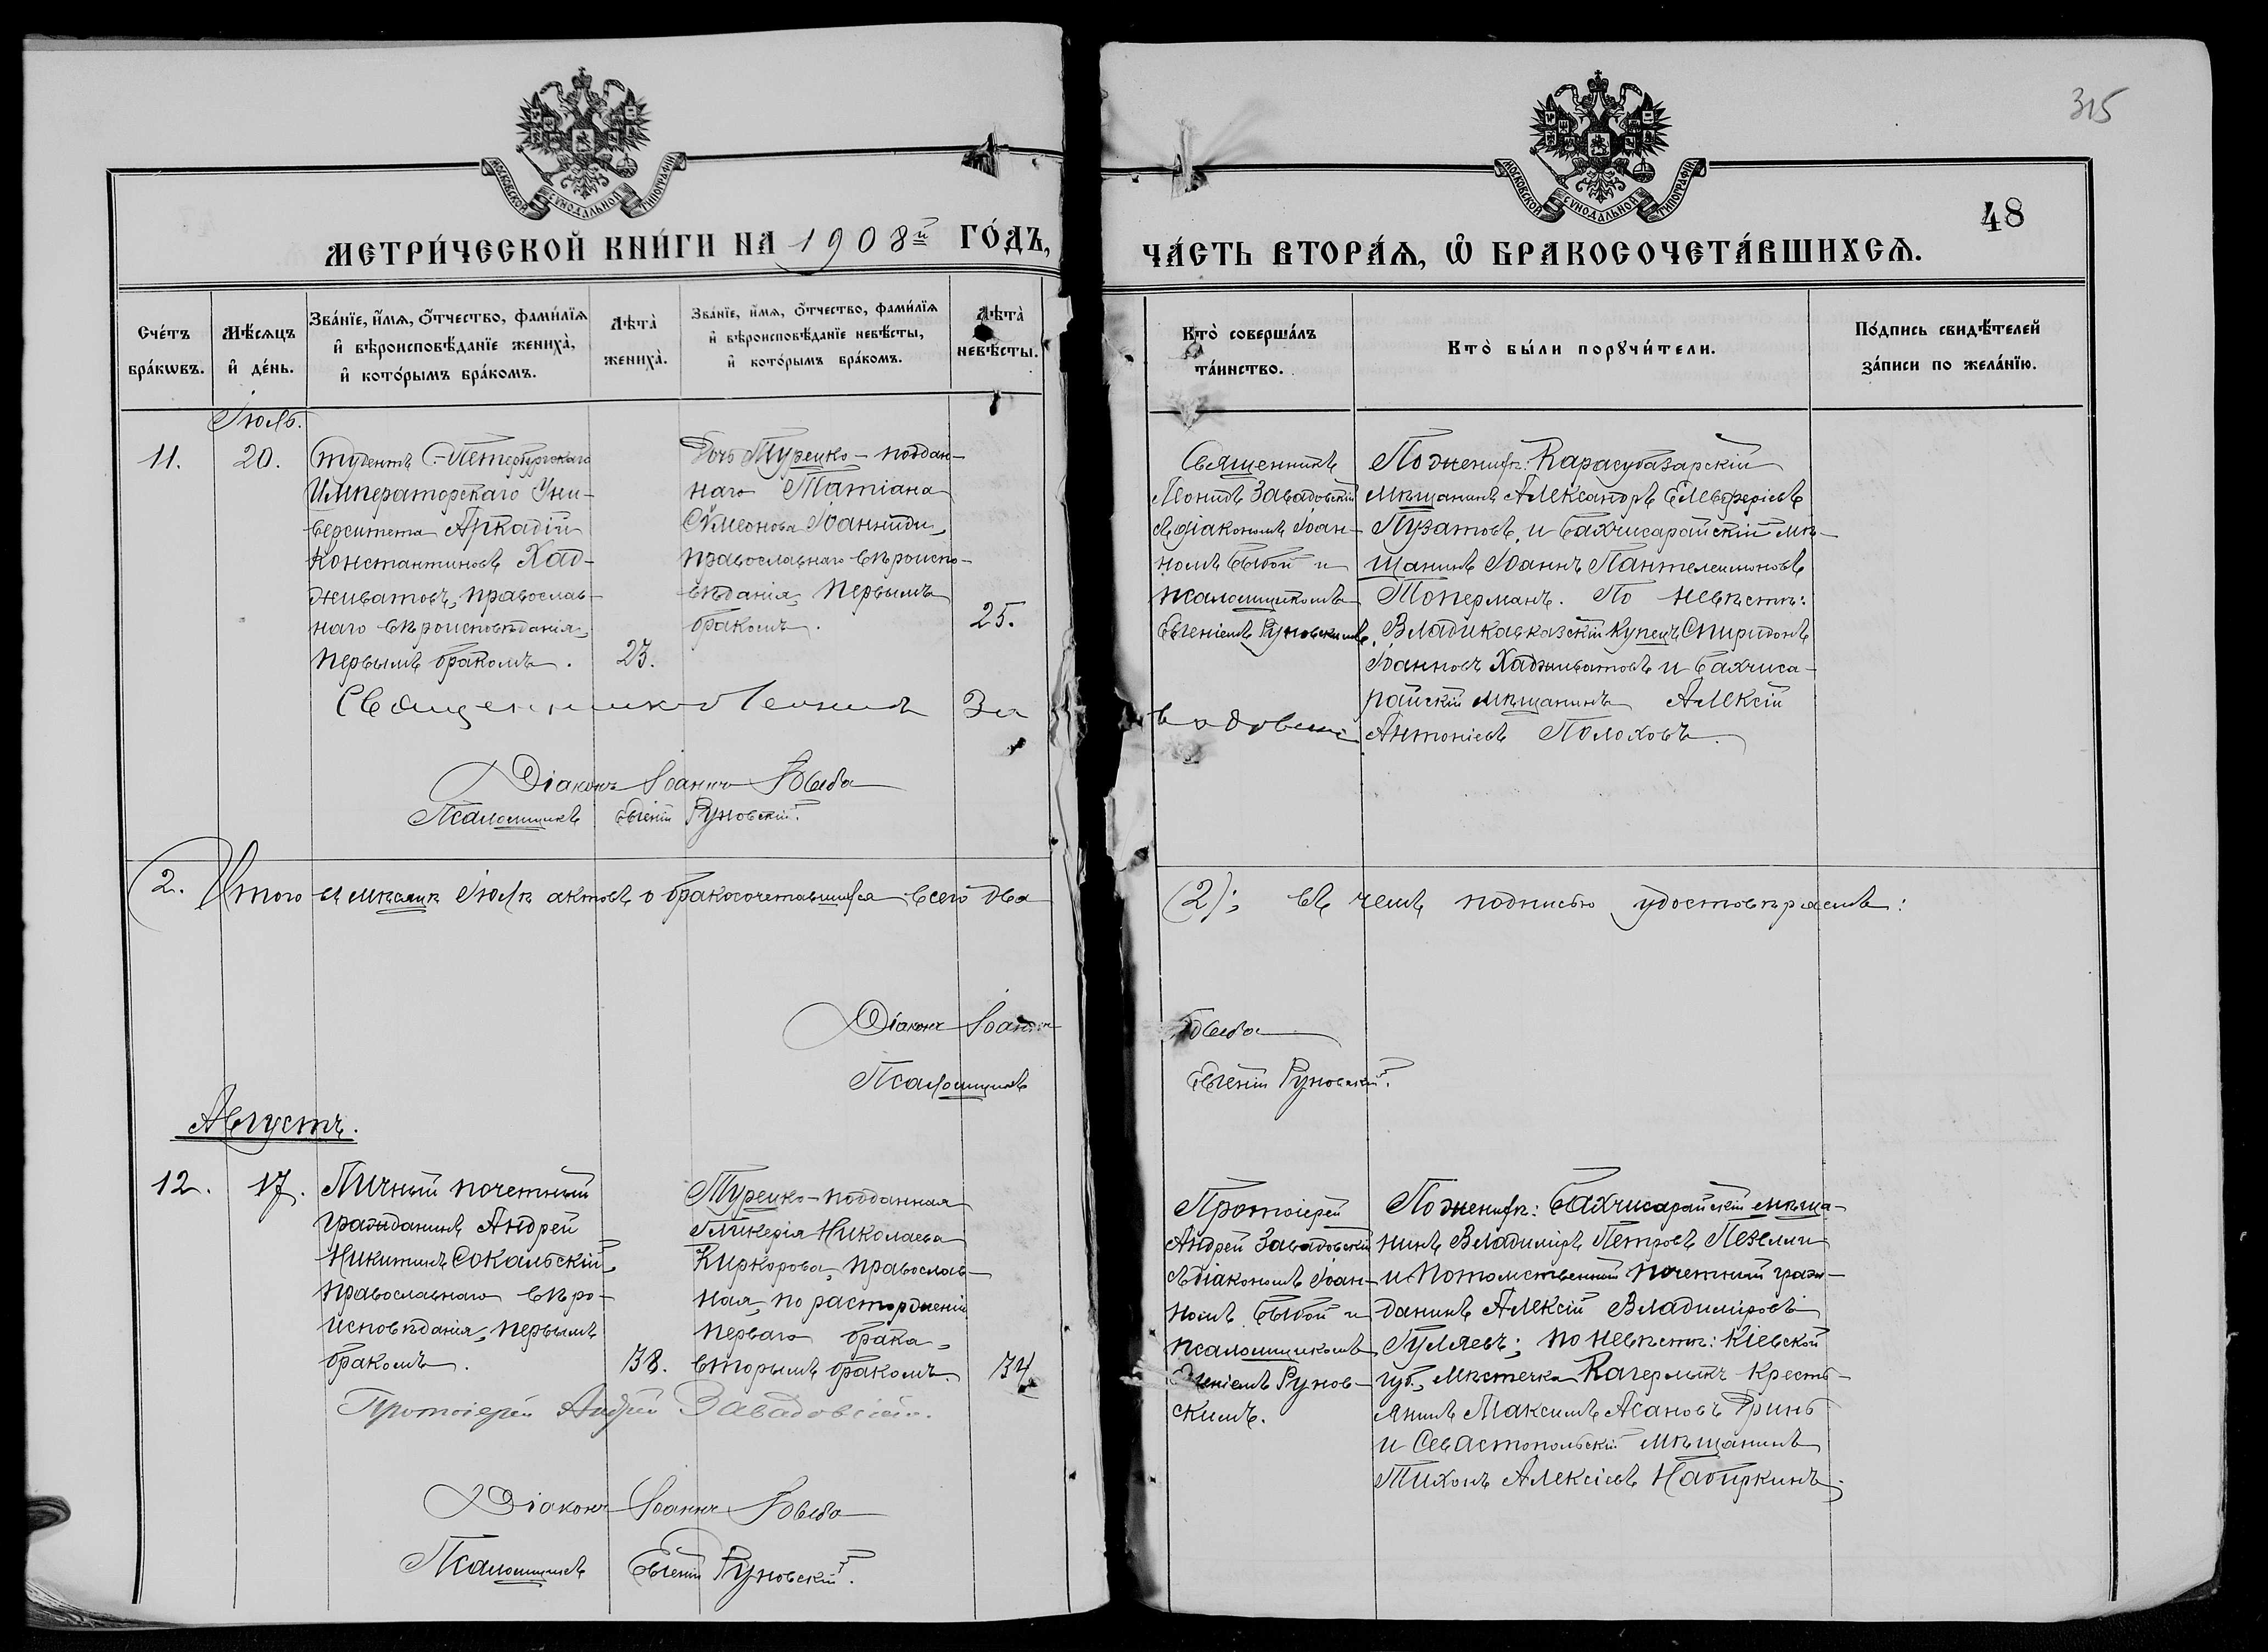 315
48
МОСКОВСКОЙ СѴНОДАЛЬНОЙ ТИПОГРАФІИ
МОСКОВСКОЙ СѴНОДАЛЬНОЙ ТИПОГРАФІИ
МЕТРИ́ЧЕСКОЙ КНИ́ГИ НА 1908й ГО́ДЪ,
ЧА́СТЬ ВТОРА́Ѧ, Ѡ҆ БРАКОСОЧЕТА́ВШИХСѦ.
Сче́тъ бра́кωвъ.
Мѣ́сяцъ и҆ де́нь.
Зва́нїе, и҆́мѧ, о҆́тчество, фами́лїѧ
и҆ вѣроисповѣ́данїе жениха̀,
и҆ кото́рымъ бра́комъ.
Лѣта̀ жениха̀.
Зва́нїе, и҆́мѧ, о҆́тчество, фами́лїѧ
и҆ вѣроисповѣ́данїе невѣ́сты,
и҆ кото́рымъ бра́комъ.
Лѣта̀ невѣ́сты.
Кто̀ соверша́лъ та́инство.
Кто̀ бы́ли порꙋчи́тели.
По́дпись свидѣ́телей
за́писи по жела́нїю.
Іюль.
11.
20.
Студентъ С.-Петербургскаго
Императорскаго Уни-
верситета Аркадій
Константиновъ Хад-
живатовъ, православ-
наго вѣроисповѣданія,
первымъ бракомъ.
23.
Дочь Турецко-поддан-
наго Татіана
Сѵмеонова Іоанниди,
православнаго вѣроиспо-
вѣданія, первымъ
бракомъ.
25.
Священникъ
Леонидъ Завадовскій
съ діакономъ Іоан-
номъ Бывой и
псаломщикомъ
Евгеніемъ Руновскимъ.
По женихѣ: Карасубазарскій
мѣщанинъ Александръ Елевферіевъ
Пузатовъ, и Бахчисарайскій мѣ-
щанинъ Іоаннъ Пантелеимоновъ
Топерманъ. По невѣстѣ:
Владикавказскій купецъ Спиридонъ
Іоанновъ Хадживатовъ и Бахчиса-
райскій мѣщанинъ Алексій
Антоніевъ Полоховъ.
Священникъ Леонидъ Завадовскій
Діаконъ Іоаннъ Бывба
Псаломщикъ Евгеній Руновскій.
2. Итого въ мѣсяцѣ Іюлѣ актовъ о бракосочетавшихся всего два (2); въ чемъ подписью удостовѣряемъ:
Діаконъ Іоаннъ
Псаломщикъ Евгеній Руновскій.
Августъ.
12.
17.
Личный почетный
гражданинъ Андрей
Никитинъ Сокальскій,
православнаго вѣро-
исповѣданія, первымъ
бракомъ.
38.
Турецко-подданная
Гликерія Николаева
Киркорова, православ-
ная, по расторженіи
перваго брака,
вторымъ бракомъ.
34
Протоіерей
Андрей Завадовскій
съ діакономъ Іоан-
номъ Бывой и
псаломщикомъ
Евгеніемъ Рунов-
скимъ.
По женихѣ: Бахчисарайскій мѣща-
нинъ Владиміръ Петровъ
и Потомственный почетный граж-
данинъ Алексій Владиміровъ
Гуляевъ; по невѣстѣ: Кіевской
губ., мѣстечка Кагерлыкъ кресть-
янинъ Максимъ Асановъ Гринь
и Севастопольскій мѣщанинъ
Тихонъ Алексіевъ Набиркинъ.
Протоіерей Андрей Завадовскій.
Діаконъ Іоаннъ
Псаломщикъ Евгеній Руновскій.